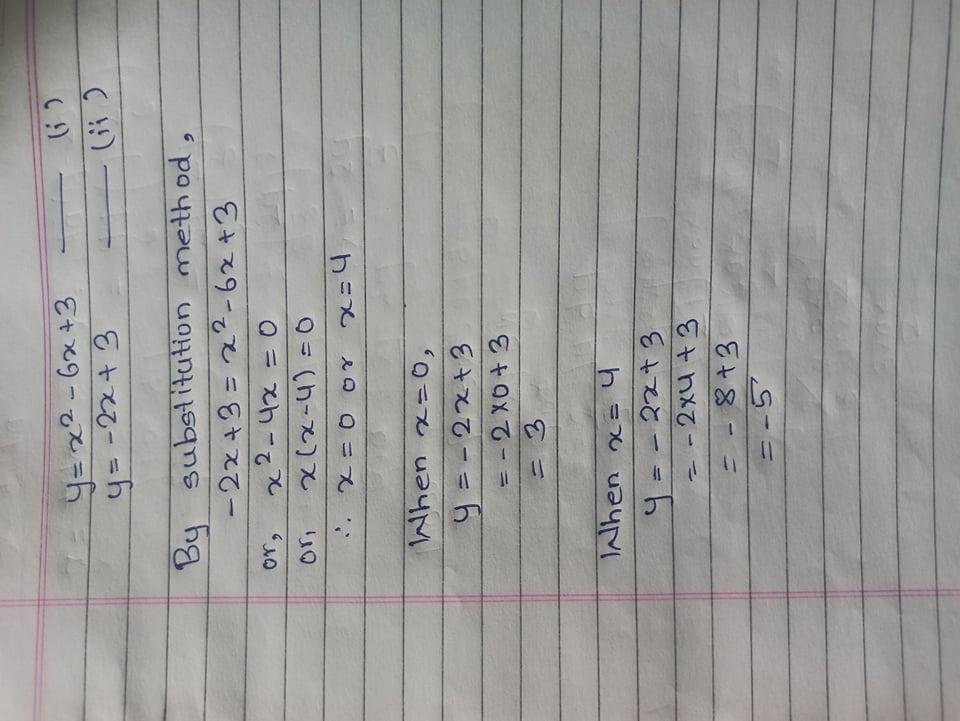 y = x² - 6x + 3 —— (i)
y = -2x + 3 —— (ii)
By substitution method,
-2x + 3 = x² - 6x + 3
or, x² - 4x = 0
or, x(x-4) = 0
∴ x = 0 or x = 4
When x = 0,
y = -2x + 3
= -2×0 + 3
= 3
When x = 4
y = -2x + 3
= -2×4 + 3
= -8 + 3
= -5